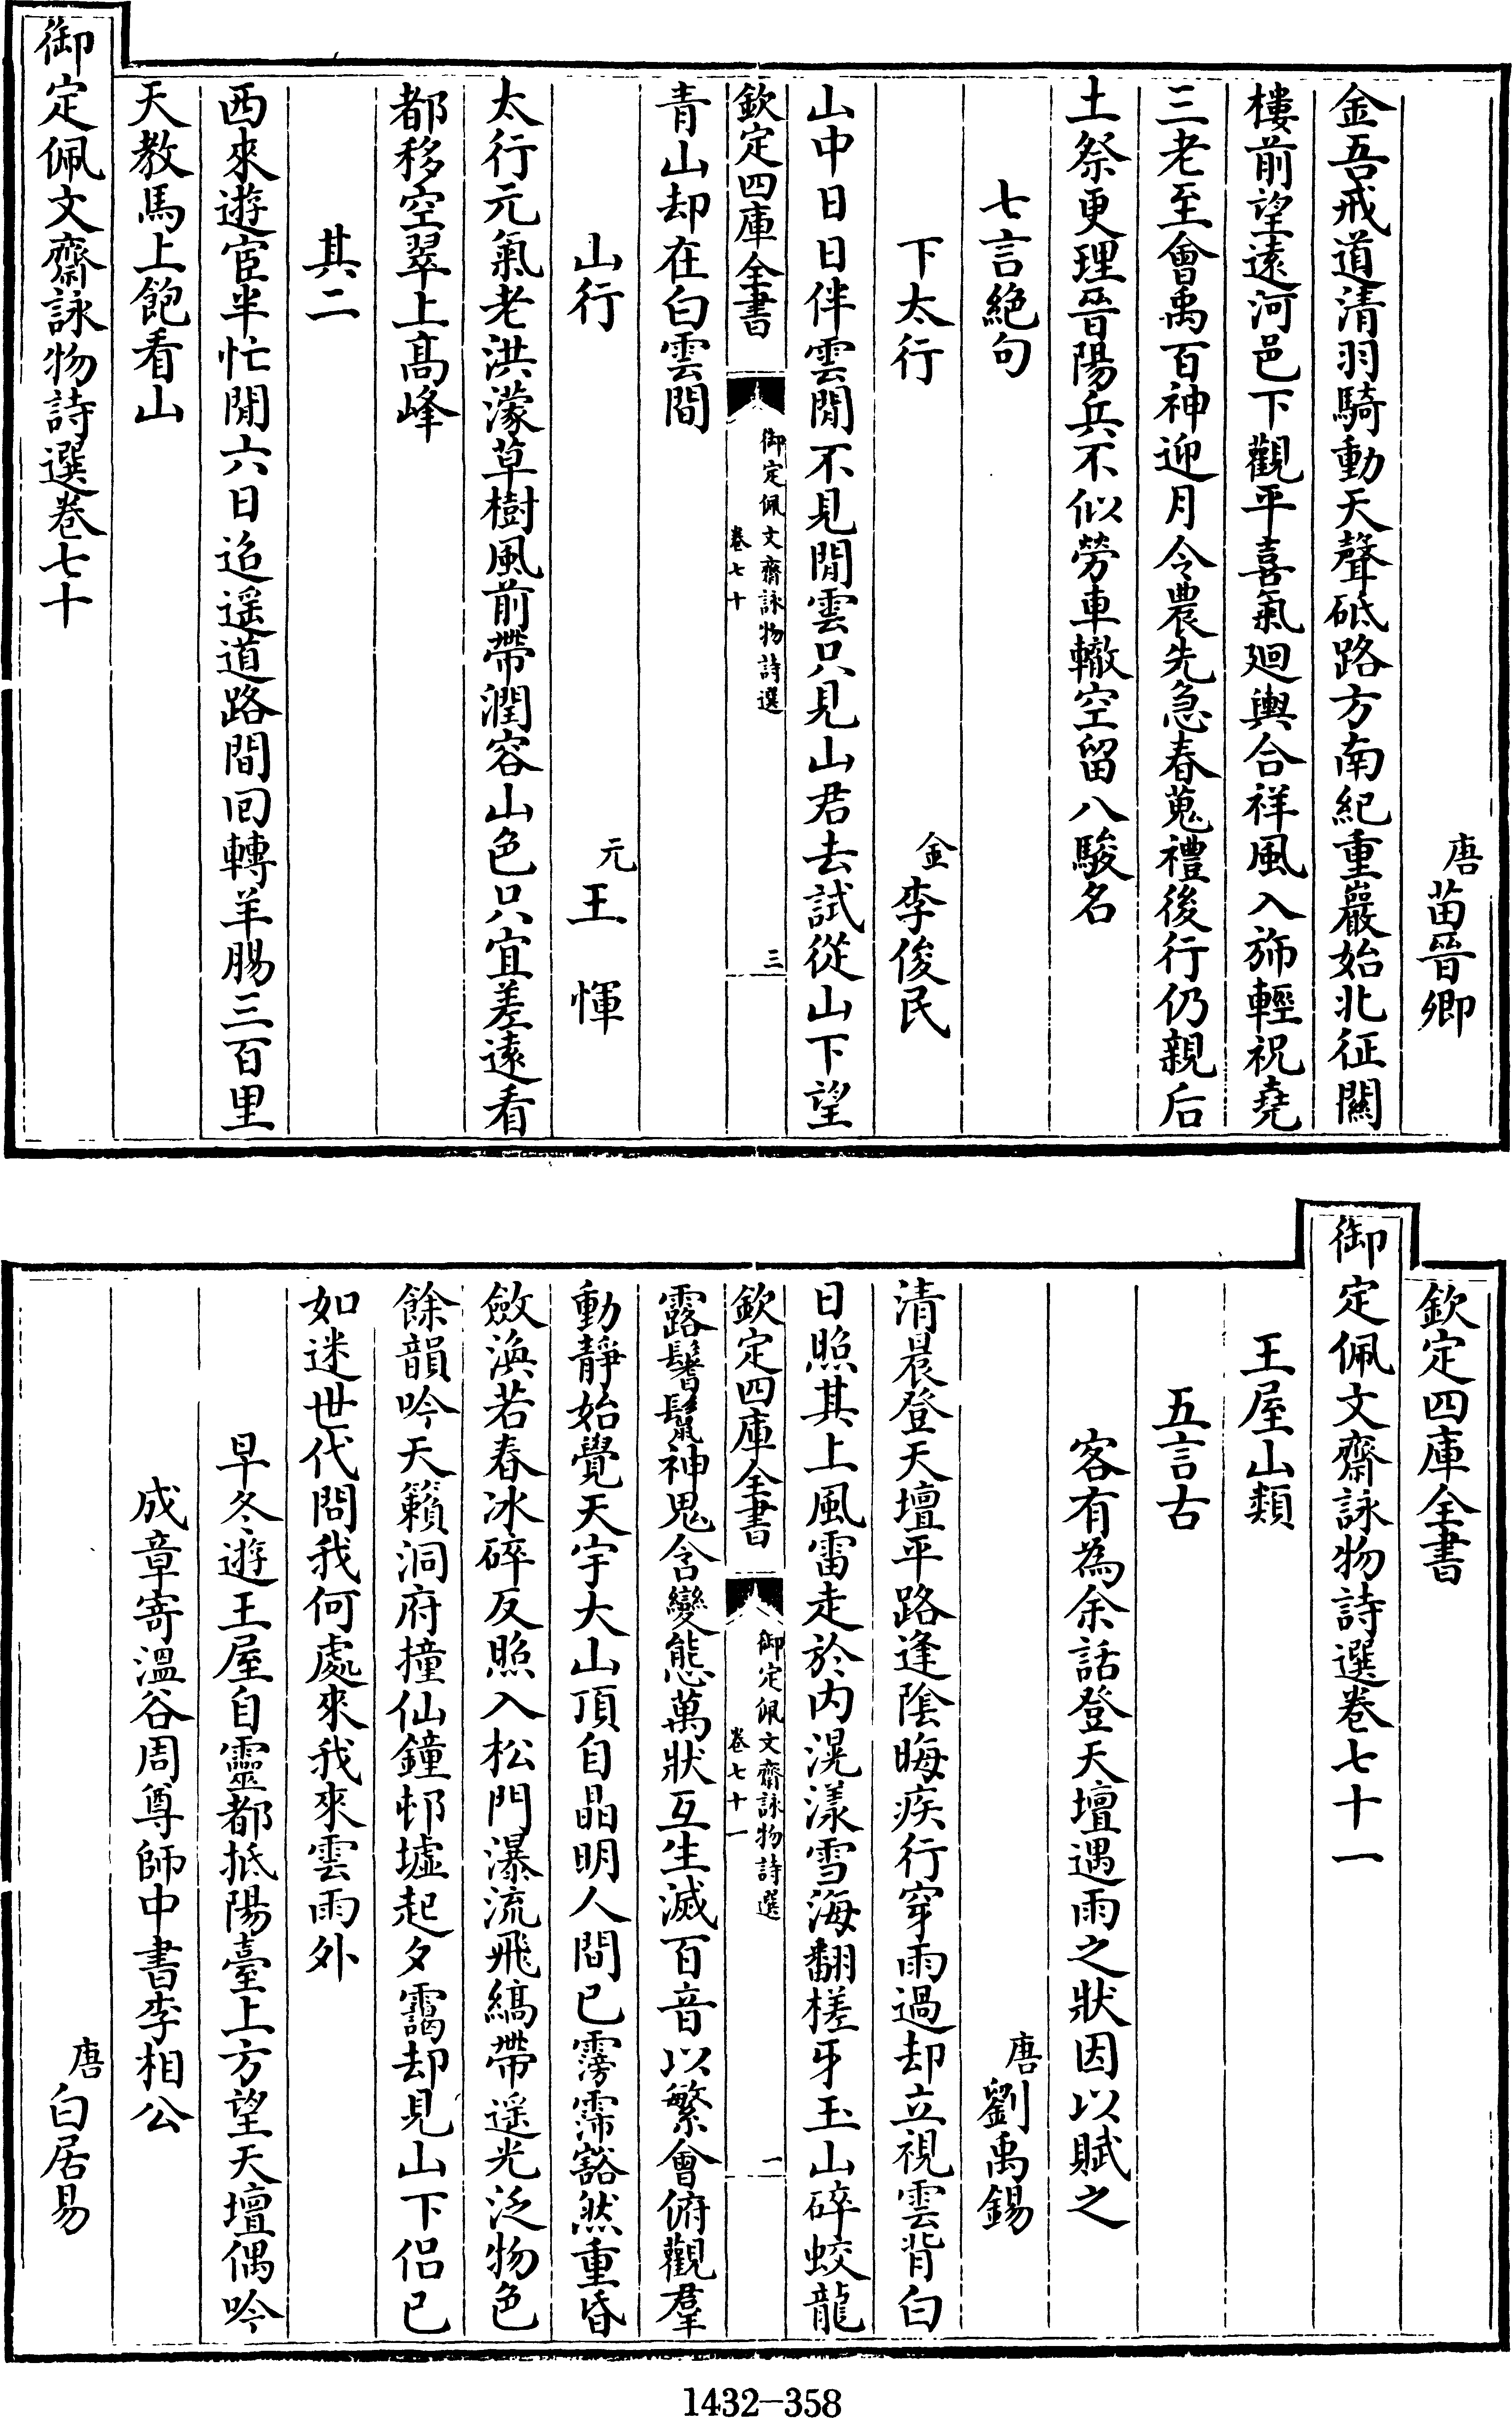 唐苗晉卿
金吾戒道清羽騎動天聲砥路方南紀重巖始北征關
樓前望遠河邑下觀平喜氣廻輿合祥風入斾輕祝堯
三老至會禹百神迎月令農先急春蒐禮後行仍親后
土祭更理晉陽兵不似勞車轍空留八駿名
七言絶句
下太行 金李俊民
山中日日伴雲閒不見閒雲只見山君去試從山下望
欽定四庫全書 御定佩文齋詠物詩選 卷七十 三
青山却在白雲間
山行 元王惲
太行元氣老洪濛草樹風前帶潤容山色只宜差遠看
都移空翠上髙峰
其二
西來遊宦半忙閒六日迢遥道路間回轉羊腸三百里
天教馬上飽看山
御定佩文齋詠物詩選卷七十
欽定四庫全書
御定佩文齋詠物詩選卷七十一
王屋山類
五言古
客有為余話登天壇遇雨之狀因以賦之
唐劉禹錫
清晨登天壇平路逢陰晦疾行穿雨過却立視雲背白
日照其上風雷走於内滉漾雪海翻槎牙玉山碎蛟龍
欽定四庫全書 御定佩文齋詠物詩選 卷七十一 一
露鬐鬛神鬼含變態萬狀互生滅百音以繁會俯觀羣
動靜始覺天宇大山頂自晶明人間已霶霈豁然重昏
斂渙若春冰碎反照入松門瀑流飛縞帶遥光泛物色
餘韻吟天籟洞府撞仙鐘邨墟起夕靄却見山下侣已
如迷世代問我何處來我來雲雨外
早冬遊王屋自靈都抵陽臺上方望天壇偶吟
成章寄溫谷周尊師中書李相公
唐白居易
1432-358